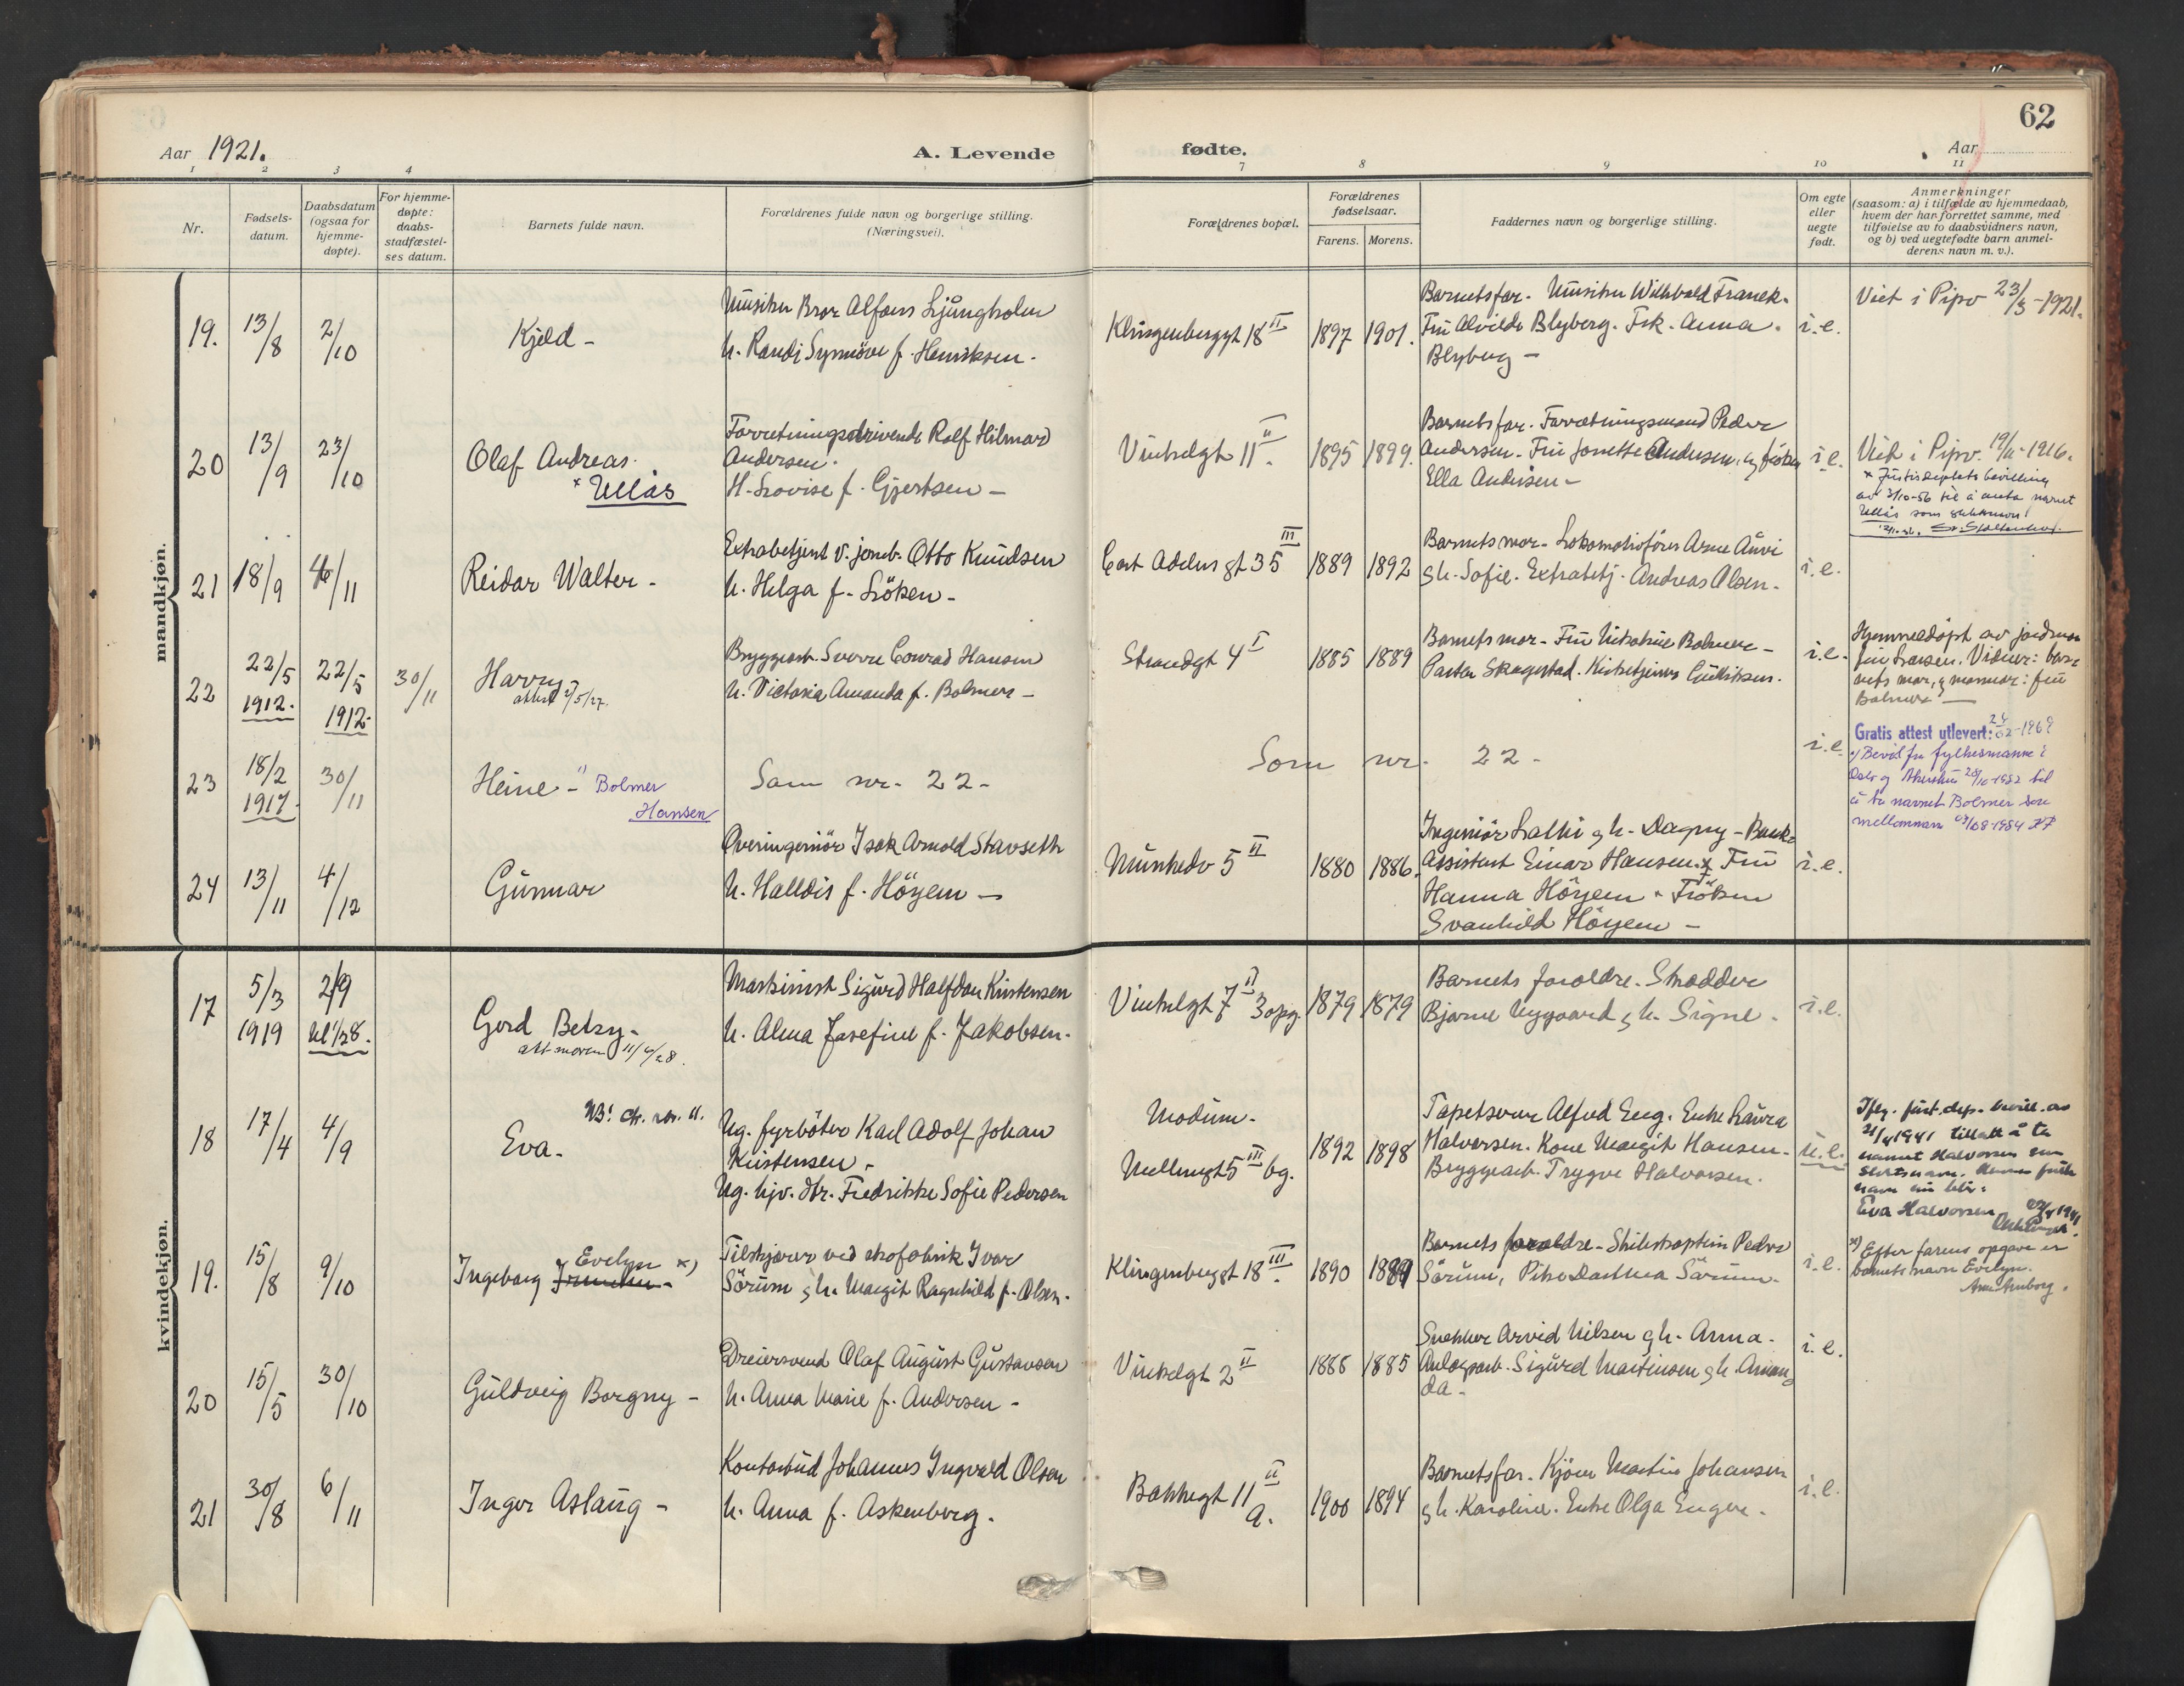 62
Aar 1921. A. Levende fødte. Aar
1 2 3 4 7 8 9 10 11
Nr.
Fødsels-
datum.
Daabsdatum
(ogsaa for
hjemme-
døpte).
For hjemme-
døpte:
daabs-
stadfæstel-
ses datum.
Barnets fulde navn.
Forældrenes fulde navn og borgerlige stilling.
(Næringsvei).
Forældrenes bopæl.
Forældrenes
fødselsaar.
Farens. Morens.
Faddernes navn og borgerlige stilling.
Om egte
eller
uegte
født.
Anmerkninger
(saasom: a) i tilfælde av hjemmedaab,
hvem der har forrettet samme, med
tilføielse av to daabsvidners navn,
og b) ved uegtefødte barn anmel-
derens navn m. v.).
mandkjøn.
19. 13/8 2/10 Kjeld -
Musiker Bror Alfons Ljungholm
h. Randi Synnöve f. Henriksen.
Klingenberggt 18 II 1897 1901.
Barnets far. Musiker Willibald Franek.
Fru Alvilde Blyberg. Frk. Anna
Blyberg -
i.e.
Viet i Pipv 23/3-1921.
20 13/9 23/10 Olaf Andreas.
* Ullås
Forretningsdrivende Rolf Hilmar
Andersen.
H. Lovise f. Gjertsen -
Vinkelgt 11 II. 1895 1899.
Barnets far. Forretningsmand Peder
Andersen. Fru Jonette Andersen, og fröken
Ella Andersen -
i.e.
Viet i Pipv. 19/11-1916.
* Justisdeptets bevilling
av 3/10-56 til å anta navnet
Ullås som slektsnavn.
21 18/9 6/11 Reidar Walter -
Extrabetjent v. jernb. Otto Knudsen
h. Helga f. Löken -
Cort Adelers gt 35 III 1889 1892
Barnets mor. Lokomotivförer Arne Auvi
gh. Sofie. Extrabetj. Andreas Olsen.
i.e.
22 22/5 1912. 22/5 1912. 30/11 Harry
attest 2/5/27.
Bryggearb. Sverre Conrad Hansen
h. Victoria Amanda f. Bolmer -
Strandgt 4 I 1885 1889
Barnets mor - Fru Nikoline Bolmer -
Pastor Skagestad. Kirketjener Gulliksen.
i.e.
Hjemmedöpt av jordmor
fru Larsen. Vidner: bar-
nets mor, og mormor: fru
Bolmer -
23 18/2 1917. 30/11 Heine - Bolmer
Hansen
Som nr. 22 -
Som nr. 22 -
i.e.
Gratis attest utlevert: 24/02-1969
Bevil fra fylkesmannen i
Oslo og Akershus 28/10-1982 til
å ta navnet Bolmer som
mellomnavn 09/08-1984
24 13/11 4/12 Gunnar
Overingeniör Isak Arnold Stavseth
h. Halldis f. Höyem -
Munkedv 5 II 1880 1886.
Ingeniör Lathi gh. Dagny - Bank-
assistent Einar Hansen. Fru
Hanna Höyem. Fröken
Svanhild Höyem -
i.e.
kvindekjøn.
17 5/3 1919 2/9 kl 1/28. Gerd Betzy -
att moren 11/4/28.
Maskinist Sigurd Halfdan Kristensen
h. Alma Josefine f. Jakobsen.
Vinkelgt 7 II 3 opg. 1879 1879
Barnets foreldre. Skredder
Bjarne Nygaard gh. Signe.
i.e.
18 17/4 4/9 Eva.
NB! cfr. nr. 11.
Ug. fyrböter Karl Adolf Johan
Kristensen -
Ug. hjv. dtr. Fredrikke Sofie Pedersen
Modum.
Mellumgt 5 III bg. 1892 1898
Tapetserer Alfred Eng. Enke Laura
Halvorsen. Kone Margit Hansen.
Bryggearb. Trygve Halvorsen.
u.e.
Iflg. just. dep. bevill. av
21/4 1941 tillatt å ta
navnet Halvorsen som
slektsnavn. Hennes fulde
navn nu blir:
Eva Halvorsen
19. 15/8 9/10 Ingeborg Evelyn *)
Tilskjærer ved skofabrik Ivar
Sörum gh. Margit Ragnhild f. Olsen.
Klingenberggt 18 III. 1890 1889
Barnets foreldre - Skibskaptein Peder
Sörum, Pike Dartnea Sörum.
i.e.
*) Efter farens opgave er
barnets navn Evelyn.
20 15/5 30/10 Guldveig Borgny -
Dreiersvend Olaf August Gustavsen
h. Anna Marie f. Andersen -
Vinkelgt 2 II 1888 1885
Snekker Arvid Nilsen gh. Anna.
Anlægsarb. Sigurd Martinsen gh. Aman-
da -
i.e.
21 30/8 6/11 Inger Aslaug -
Kontorbud Johannes Ingvald Olsen
h. Anna f. Askenberg.
Bakkegt 11 II a. 1900 1894
Barnets far. Kjörer Martin Johansen
gh. Karoline. Enke Olga Engen.
i.e.